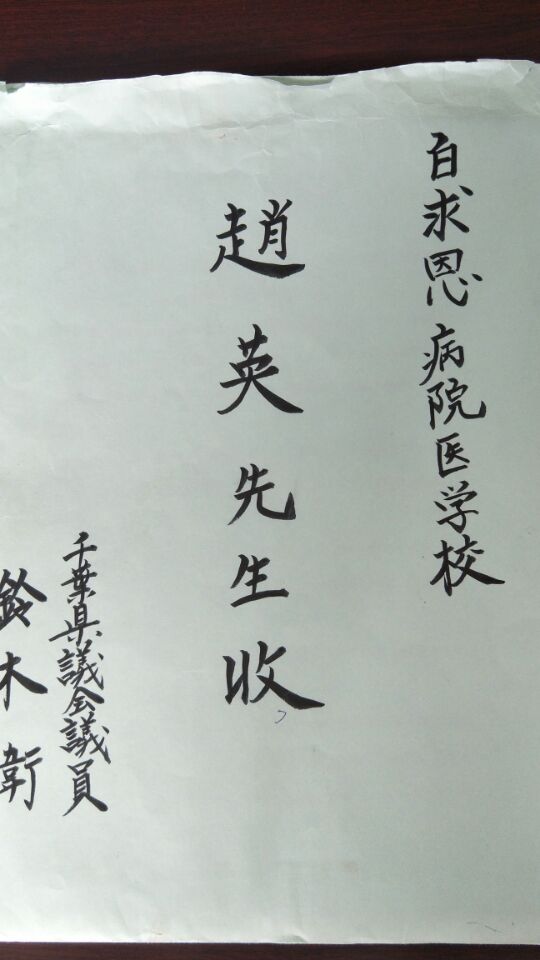 白求恩病院医学校
趙英先生收
千葉県議会議員
鈴木衛